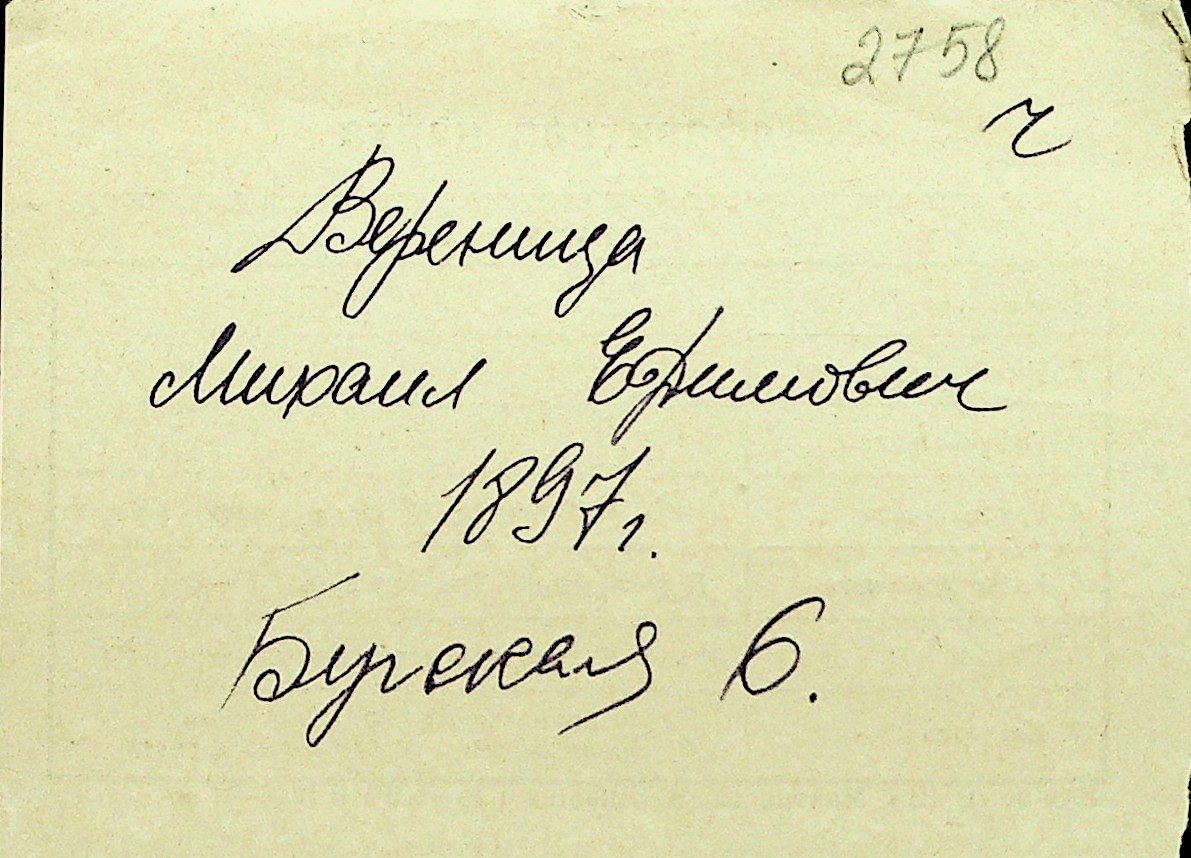 2758
ч
Вереница
Михаил Ефимович
1897г.
Бугская 6.